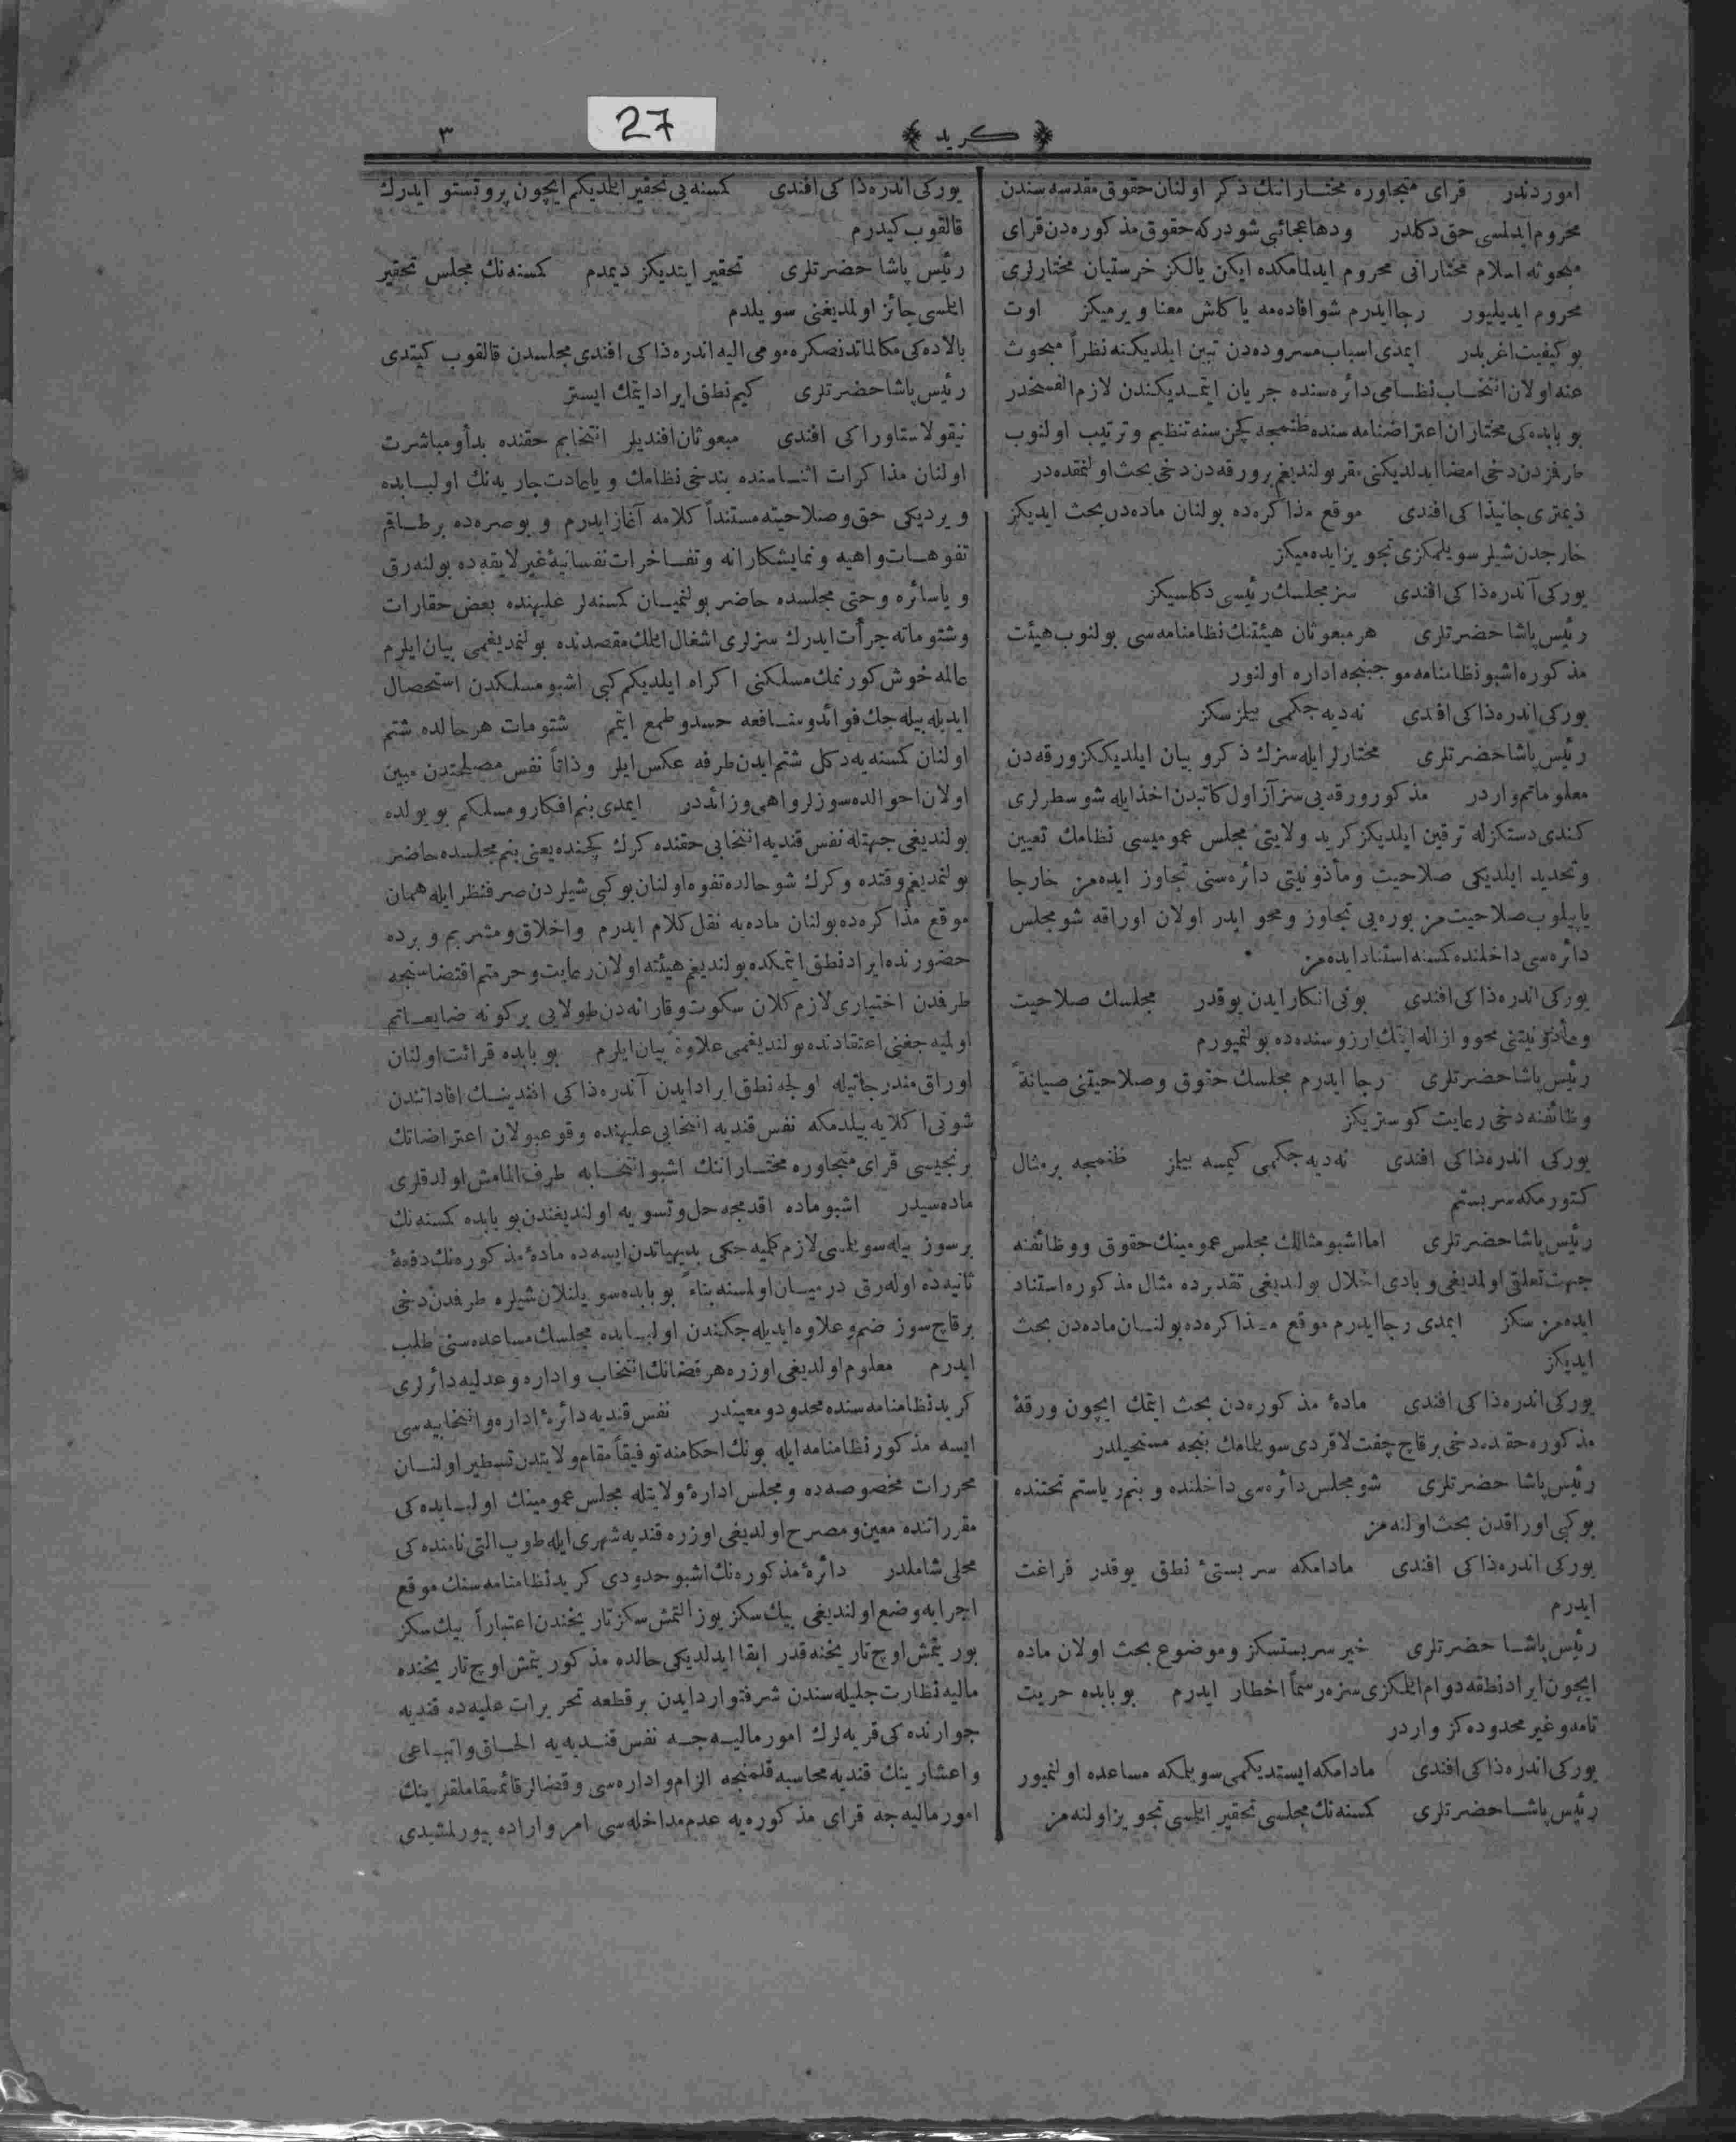 27
﴿ كريد ﴾
٣
اموردندر قرای متجاوره مختارانك ذكر اولنان حقوق مقدسه سندن
محروم ايدلمسی حق دكلدر ودها عجائبی شودركه حقوق مذكوره دن قرای
مبحوثه اسلام مختارانی محروم ايدلمامكده ايكن يالكز خرستيان مختارلری
محروم ايديليور رجا ايدرم شو افاده مه ياكلش معنا ويرميكز اوت
بو كيفيت اغربدر ايمدی اسباب مسروده دن تبين ايلديكنه نظراً مبحوث
عنه اولان انتخاب نظامی دائره سنده جريان ايتمديكندن لازم الفسخدر
بو بابده كی مختاران اعتراضنامه سنده ظنمجه كچن سنه تنظيم وترتيب اولنوب
طرفمزدن دخی امضا ايدلديكنی مقر بولنديغم بر ورقه دن دخی بحث اولنمقده در
ديمتری جانيذاكی افندی موقع مذاكره ده بولنان ماده دن بحث ايديكز
خارجدن شيلر سويلمكزی تجويز ايده ميكز
يوركی آندره ذاكی افندی سز مجلسك رئيسی دكلسيكز
رئيس پاشا حضرتلری هر مبعوثان هيئتنك نظامنامه سی بولنوب هيئت
مذكوره اشبو نظامنامه موجبنجه اداره اولنور
يوركی اندره ذاكی افندی نه ديه جكمی بيلز سكز
رئيس پاشا حضرتلری مختارلر ايله سزك ذكر و بيان ايلديككز ورقه دن
معلوماتم واردر مذكور ورقه يی سز آز اول كاتبدن اخذ ايله شو سطرلری
كندی دستكزله ترقين ايلديكز كريد ولايتی مجلس عموميسی نظامك تعيين
وتحديد ايلديكی صلاحيت ومأذونيتی دائره سنی تجاوز ايده مز خارجا
ياپيلوب صلاحيت مز بوره يی تجاوز ومحو ايدر اولان اوراقه شو مجلس
دائره سی داخلنده كمسنه استناد ايده مز
يوركی اندره ذاكی افندی بونی انكار ايدن يوقدر مجلسك صلاحيت
ومأذونيتنی محو و ازاله ايتمك ارزوسنده ده بولنميورم
رئيس پاشا حضرتلری رجا ايدرم مجلسك حقوق وصلاحيتنی صيانةً
وظائفنه دخی رعايت كوستريكز
يوركی اندره ذاكی افندی نه ديه جكمی كيمسه بيلز ظنمجه بر مثال
كتورمكه سربستم
رئيس پاشا حضرتلری اما اشبو مثالك مجلس عمومينك حقوق ووظائفنه
جهت تعلقی اولمديغی و بادی اخلال بولنديغی تقديرده مثال مذكوره استناد
ايده مز سكز ايمدی رجا ايدرم موقع مذاكره ده بولنان ماده دن بحث
ايديكز
يوركی اندره ذاكی افندی مادهٔ مذكوره دن بحث ايتمك ايچون ورقهٔ
مذكوره حقنده دخی برقاچ چفت لاقردی سويلمامك بنجه مستحيلدر
رئيس پاشا حضرتلری شو مجلس دائره سی داخلنده و بنم رياستم تحتنده
بو كبی اوراقدن بحث اولنه مز
يوركی اندره ذاكی افندی مادامكه سربستیٔ نطق يوقدر فراغت
ايدرم
رئيس پاشا حضرتلری خير سربستسكز وموضوع بحث اولان ماده
ايچون ايراد نطقه دوام ايلمكزی سزه رسماً اخطار ايدرم بو بابده حريت
تامه و غير محدوده كز واردر
يوركی اندره ذاكی افندی مادامكه ايستديكمی سويلمكه مساعده اولنميور
رئيس پاشا حضرتلری كمسنه نك مجلسی تحقير ايلمسی تجويز اولنه مز
يوركی اندره ذاكی افندی كمسنه يی تحقير ايلديكم ايچون پروتستو ايدرك
قالقوب كيدرم
رئيس پاشا حضرتلری تحقير ايتديكز ديمدم كمسنه نك مجلس تحقير
ايلمسی جائز اولمديغنی سويلدم
بالاده كی مكالماتدنصكره مومی اليه اندره ذاكی افندی مجلسدن قالقوب كيتدی
رئيس پاشا حضرتلری كيم نطق ايراد ايتمك ايستر
نيقولا ستاوراكی افندی مبعوثان افنديلر انتخابم حقنده بدأ ومباشرت
اولنان مذاكرات اثناسنده بند خی نظامك و ياعادت جاريه نك اولبابده
ويرديكی حق وصلاحيته مستنداً كلامه آغاز ايدرم و بوصره ده بر طاقم
تفوهات واهيه ونمايشكارانه وتفاخرات نفسانيهٔ غير لايقه ده بولنه رق
و ياسائره وحتی مجلسده حاضر بولنميان كمسنه لر عليهنده بعض حقارات
وشتوماته جرأت ايدرك سزلری اشغال ايلمك مقصدنده بولنمديغمی بيان ايلرم
عالمه خوش كورنمك مسلكنی اكراه ايلديكم كبی اشبو مسلكدن استحصال
ايديله بيله جك فوائد ومنافعه حسد وطمع ايتمم شتومات هر حالده شتم
اولنان كمسنه يه دكل شتم ايدن طرفه عكس ايلر وذاتاً نفس مصلحتدن مبين
اولان احوالده سوزلر واهی وزائددر ايمدی بنم افكار ومسلكم بو يولده
بولنديغی جهتله نفس قنديه انتخابی حقنده كرك كچنده يعنی بنم مجلسده حاضر
بولنمديغم وقتده وكرك شو حالده تفوه اولنان بو كبی شيلردن صرفنظر ايله همان
موقع مذاكره ده بولنان ماده يه نقل كلام ايدرم واخلاق ومشربم و برده
حضورنده ايراد نطق ايتمكده بولنديغم هيئته اولان رعايت وحرمتم اقتضاسنجه
طرفمدن اختياری لازم كلان سكوت وقارانه دن طولايی بر كونه ضايعاتم
اولميه جغنی اعتقادنده بولنديغمی علاوةً بيان ايلرم بو بابده قرائت اولنان
اوراق مندرجاتيله اولجه نطق ايراد ايدن آندره ذاكی افندينك افاداتندن
شونی اكلايه بيلدمكه نفس قنديه انتخابی عليهنده وقوعبولان اعتراضاتك
برنجيسی قرای متجاوره مختارانك اشبو انتخابه طرف المامش اولدقلری
ماده سيدر اشبو ماده اقدمجه حل وتسويه اولنديغندن بو بابده كمسنه نك
بر سوز بيله سويلمسی لازم كلميه جكی بديهياتدن ايسه ده مادهٔ مذكوره نك دفعهٔ
ثانيه ده اوله رق درميان اولمسنه بناءً بو بابده سويلنلان شيلره طرفمدن دخی
برقاچ سوز ضم وعلاوه ايديله جكندن اولبابده مجلسك مساعده سنی طلب
ايدرم معلوم اولديغی اوزره هر قضانك انتخاب واداره وعدليه دائرلری
كريد نظامنامه سنده محدود ومعيندر نفس قنديه دائرهٔ اداره وانتخابيه سی
ايسه مذكور نظامنامه ايله بونك احكامنه توفيقاً مقام ولايتدن تسطير اولنان
محررات مخصوصه ده ومجلس ادارهٔ ولايتله مجلس عمومينك اولبابده كی
مقرراتنده معين ومصرح اولديغی اوزره قنديه شهری ايله طوب التی نامنده كی
محلی شاملدر دائرهٔ مذكوره نك اشبو حدودی كريد نظامنامه سنك موقع
اجرايه وضع اولنديغی بيك سكز يوز التمش سكز تاريخندن اعتباراً بيك سكز
يوز يتمش اوچ تاريخنه قدر ابقا ايدلديكی حالده مذكور يتمش اوچ تاريخنده
ماليه نظارت جليله سندن شرفتوارد ايدن بر قطعه تحريرات عليه ده قنديه
جوارنده كی قريه لرك امور ماليه جه نفس قنديه يه الحاق واتباعی
واعشارينك قنديه محاسبه قلمنجه الزام واداره سی وقضالر قائمقاملقلرينك
امور ماليه جه قرای مذكوره يه عدم مداخله سی امر واراده بيورلمشيدی